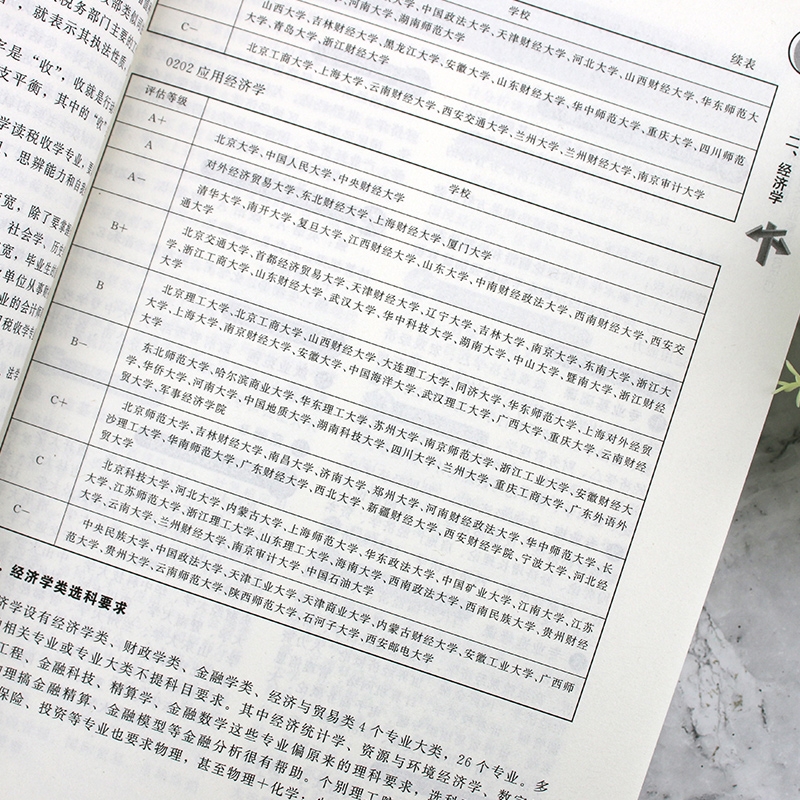 学校
续表
、河南大学、湖南师范大学
、中国政法大学、天津财经大学、河北大学、山西财经大学、华东师范大
山西大学、吉林财经大学、黑龙江大学、安徽大学、山东财经大学、华中师范大学、重庆大学、四川师范
大学、青岛大学、浙江财经大学
C-
北京工商大学、上海大学、云南财经大学、西安交通大学、兰州大学、兰州财经大学、南京审计大学
0202 应用经济学
评估等级
学校
A+
北京大学、中国人民大学、中央财经大学
A
对外经济贸易大学、东北财经大学、上海财经大学、厦门大学
A-
清华大学、南开大学、复旦大学、江西财经大学、山东大学、中南财经政法大学、西南财经大学、西安交
通大学
B+
北京交通大学、首都经济贸易大学、天津财经大学、辽宁大学、吉林大学、南京大学、东南大学、浙江大
学、浙江工商大学、山东财经大学、武汉大学、华中科技大学、湖南大学、中山大学、暨南大学、浙江财经
大学
B
北京理工大学、北京工商大学、山西财经大学、大连理工大学、同济大学、华东师范大学、上海对外经贸
大学、上海大学、南京财经大学、安徽大学、中国海洋大学、武汉理工大学、广西大学、重庆大学、云南财经
大学
B-
东北师范大学、哈尔滨商业大学、华东理工大学、苏州大学、南京师范大学、浙江工业大学、安徽财经大
学、华侨大学、河南大学、中国地质大学、湖南科技大学、四川大学、兰州大学、重庆工商大学、广东外语外
贸大学、军事经济学院
C+
北京师范大学、吉林财经大学、南昌大学、济南大学、郑州大学、河南财经政法大学、华中师范大学、长
沙理工大学、华南师范大学、广东财经大学、西北大学、新疆财经大学、西安财经学院、宁波大学、河北经
贸大学
C
北京科技大学、河北大学、内蒙古大学、上海师范大学、华东政法大学、中国矿业大学、江南大学、江苏
大学、江苏师范大学、浙江理工大学、山东理工大学、海南大学、西南政法大学、西南民族大学、贵州财经
大学、云南大学、兰州财经大学、南京审计大学、中国石油大学
C-
中央民族大学、中国政法大学、天津工业大学、天津商业大学、内蒙古财经大学、安徽工业大学、广西师
范大学、贵州大学、云南师范大学、陕西师范大学、石河子大学、西安邮电大学
、经济学类选科要求
济学设有经济学类、财政学类、金融学类、经济与贸易类 4 个专业大类，26 个专业。多
相关专业或专业大类不提科目要求。其中经济统计学、资源与环境经济学、数字
工程、金融科技、精算学、金融数学这些专业偏原来的理科要求，选科
物理搞金融精算、金融模型等金融分析很有帮助。个别理工院
保险、投资等专业也要求物理，甚至物理＋化学，
二、经济学
，就表示其执法性质，
是“收”，收就是行动
支平衡，其中的“收”
学读税收学专业，要
、思辨能力和自
宽，除了要掌握
、社会学、历史
宽，毕业生
单位从事
业的会计
税收学专
、法学